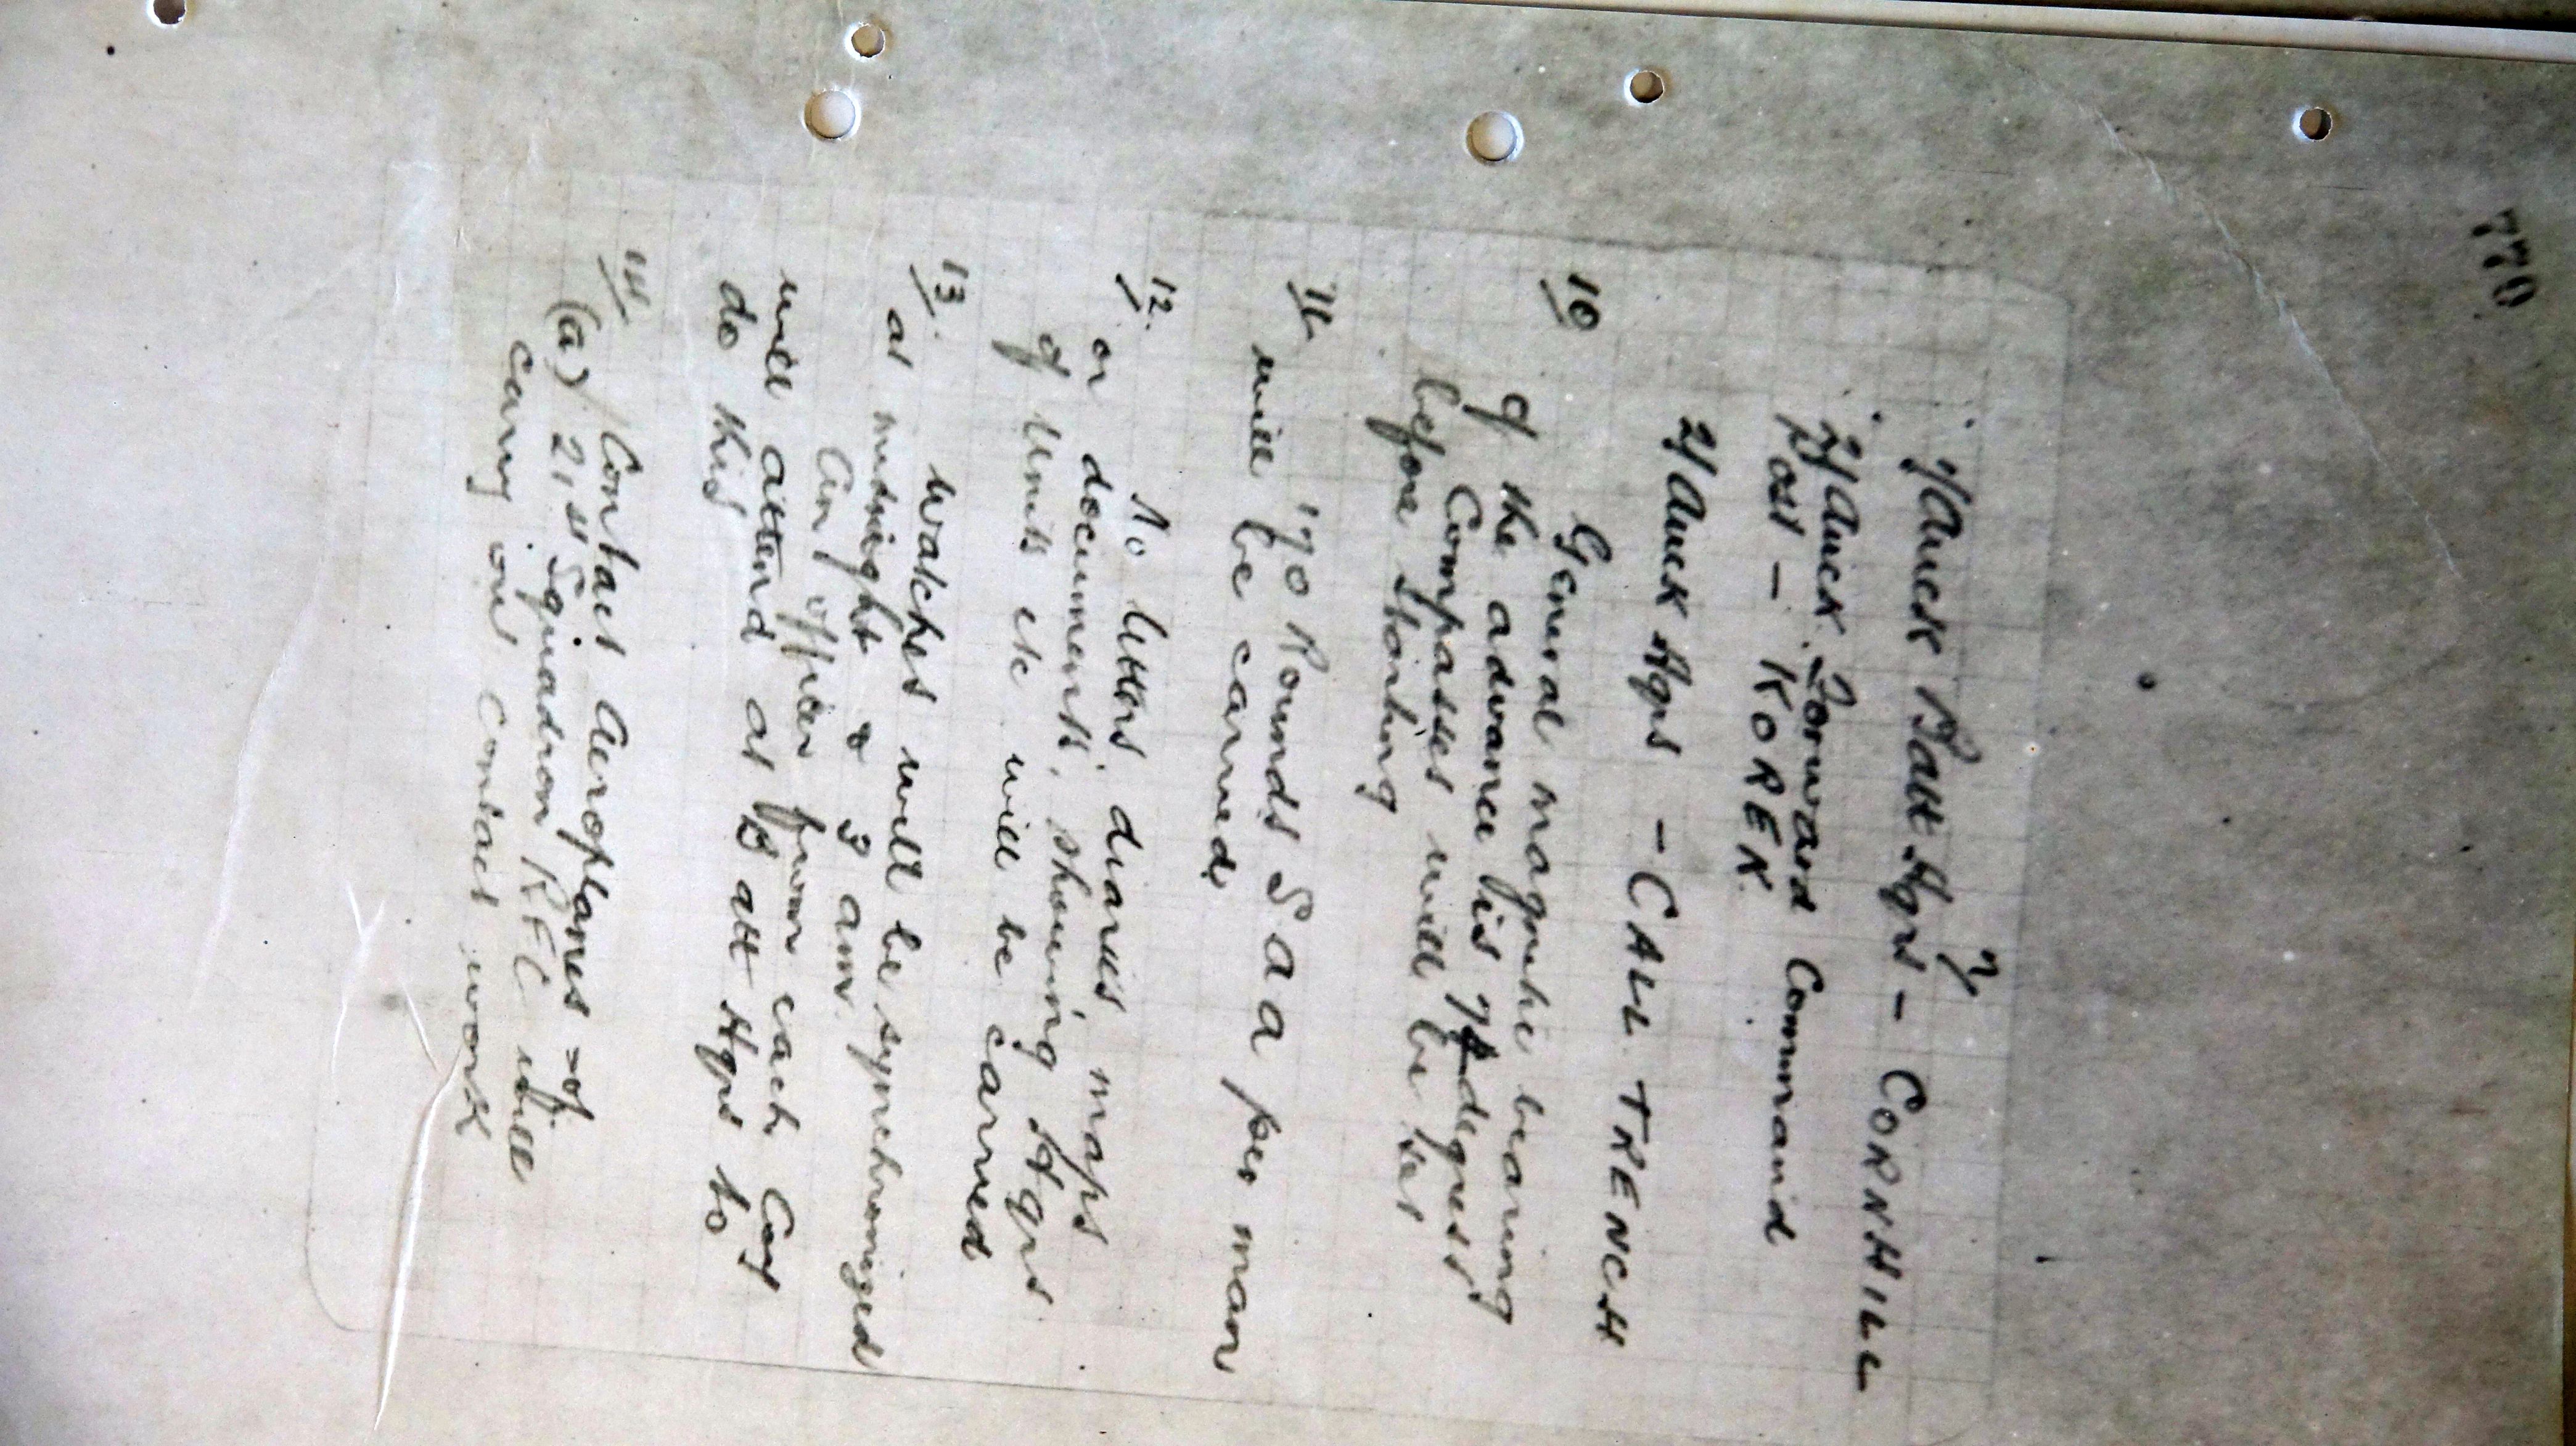 770
7
2/Auck Batt Hqrs - CORNHILL
2/Auck Forward Command
Post - KOREK
2/Auck Hqrs - CALL TRENCH
10 General magnetic bearing
of the advance is degrees
Compasses will be set
before starting
11 170 Rounds S a a per man
will be carried
12. No letters, diaries, maps
or documents, showing Hqrs
of Units etc will be carried
13. Watches will be synchronized
at midnight & 3 am.
An officer from each Coy
will attend at Batt Hqrs to
do this
14 Contact Aeroplanes - of
(a) 21st Squadron RFC will
carry out contact work